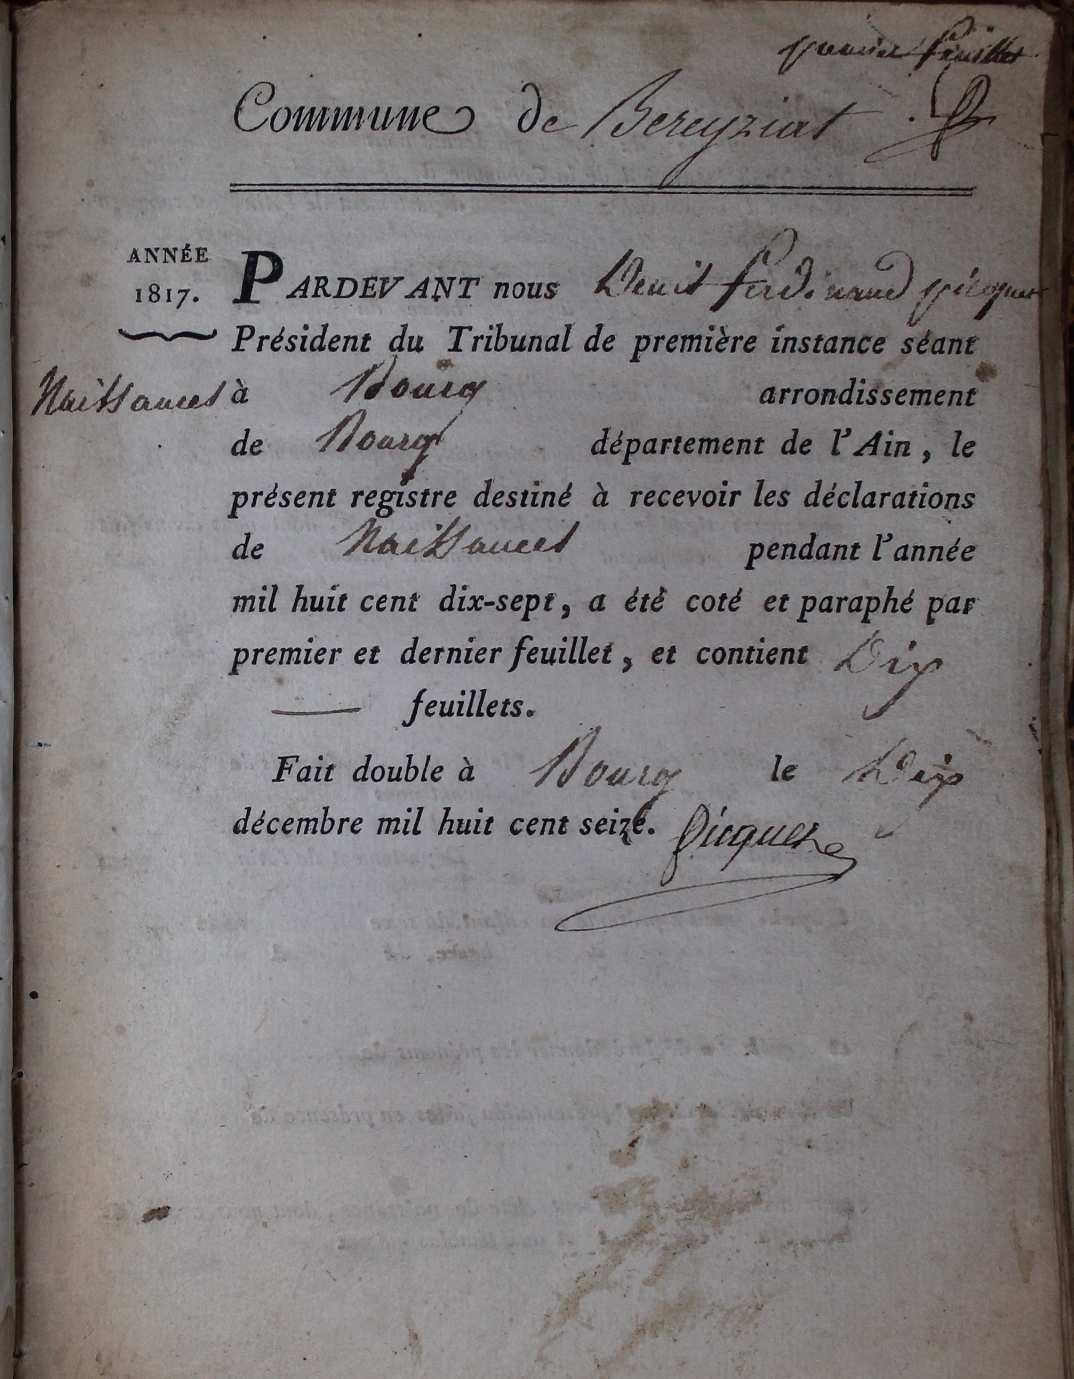 premier feuillet
Commune de Bereyziat
ANNÉE
1817.
Naissances
PARDEVANT nous Denis Ferdinand picquet
Président du Tribunal de première instance séant
à Bourg arrondissement
de Bourg département de l'Ain, le
présent registre destiné à recevoir les déclarations
de Naissances pendant l'année
mil huit cent dix-sept, a été coté et paraphé par
premier et dernier feuillet, et contient Dix
— feuillets.
Fait double à Bourg le Dix
décembre mil huit cent seize.
Picquet